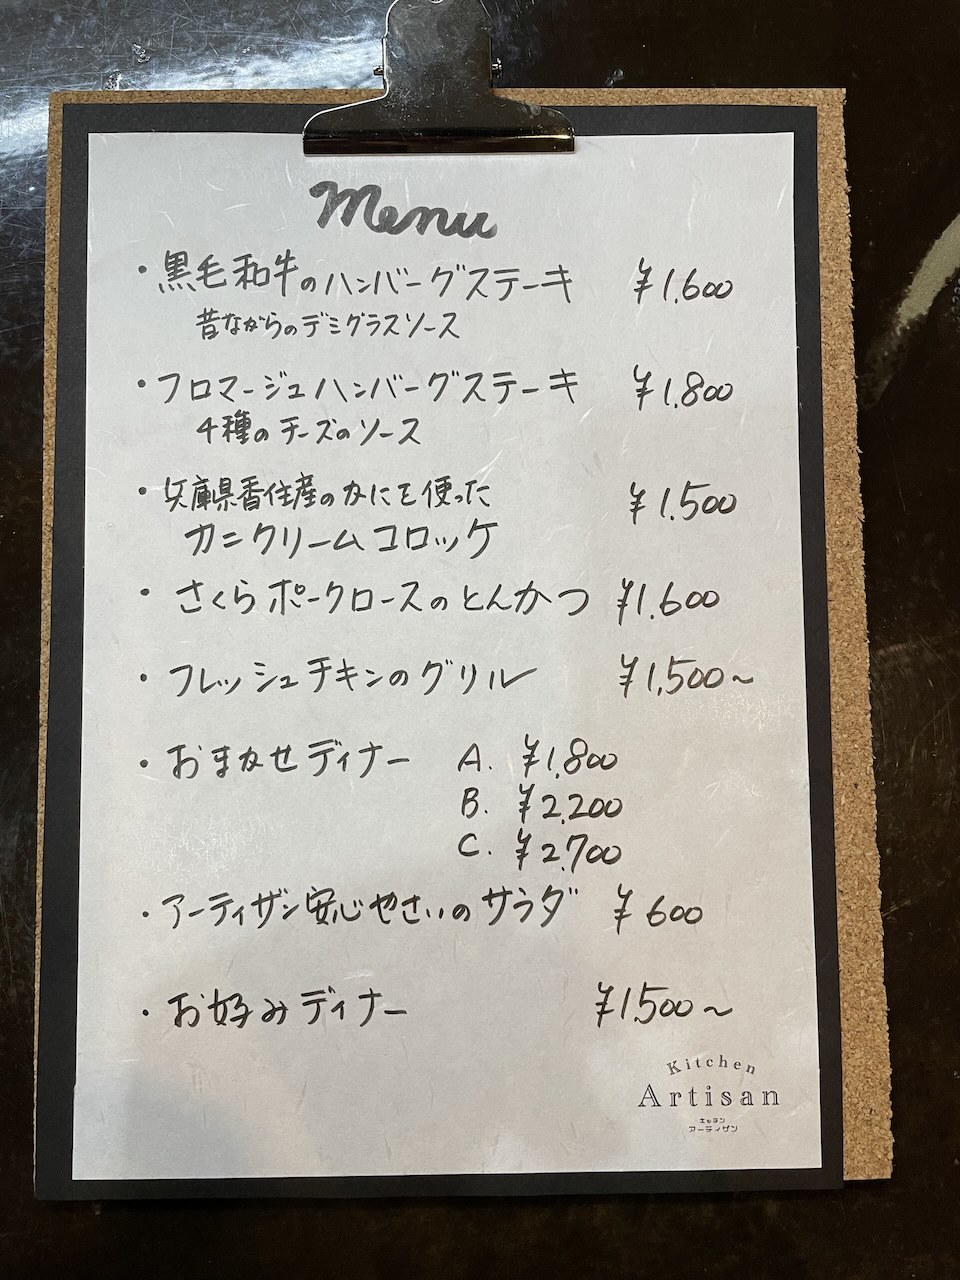 Menu
・黒毛和牛のハンバーグステーキ ¥1,600
昔ながらのデミグラスソース
・フロマージュハンバーグステーキ ¥1,800
4種のチーズのソース
・兵庫県香住産のかにを使った ¥1,500
カニクリームコロッケ
・さくらポークロースのとんかつ ¥1,600
・フレッシュチキンのグリル ¥1,500〜
・おまかせディナー A. ¥1,800
B. ¥2,200
C. ¥2,700
・アーティザン安心やさいのサラダ ¥600
・お好みディナー ¥1,500〜
Kitchen
Artisan
キッチン
アーティザン